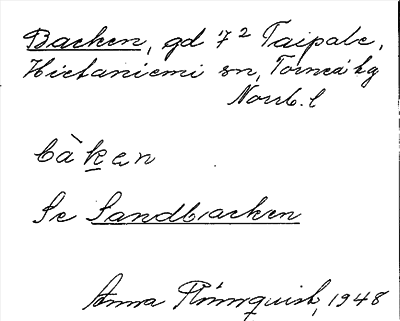 Backen, gd 7² Taipale,
Hietaniemi sn, Torneå kg
Norrb. l
bàken
Se Sandbacken
Anna Rönnquist, 1948